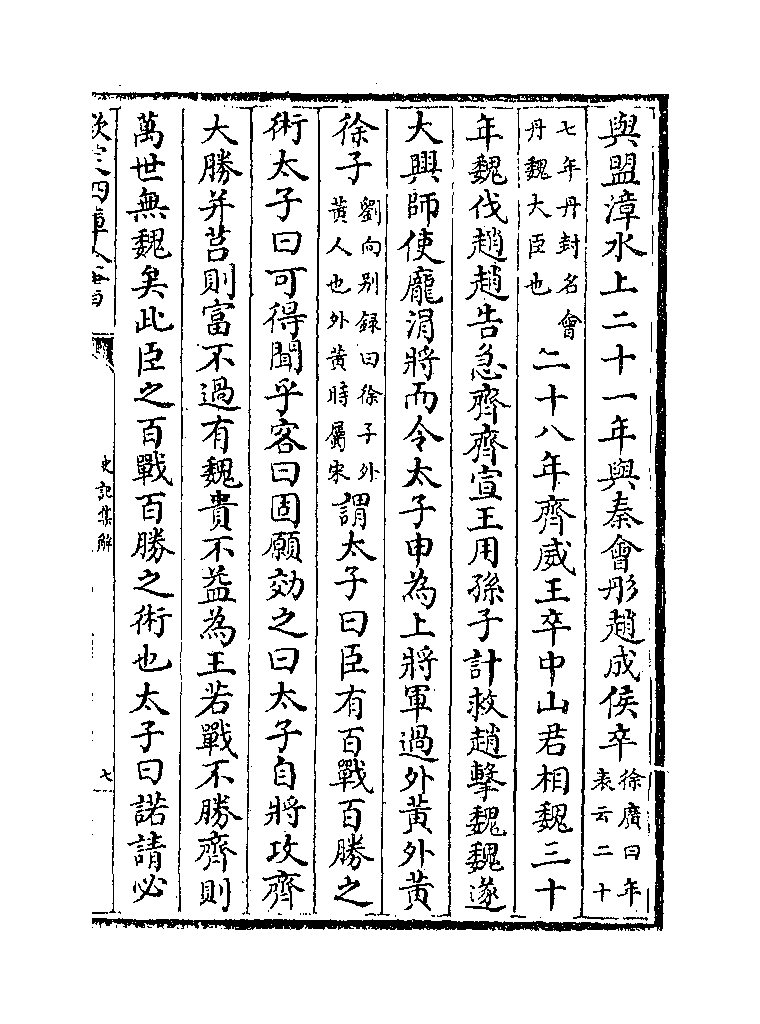 與盟漳水上二十一年與秦會彤趙成侯卒徐廣曰年表云二十
七年丹封名會丹魏大臣也二十八年齊威王卒中山君相魏三十
年魏伐趙趙告急齊齊宣王用孫子計救趙擊魏魏遂
大興師使龐涓將而令太子申為上將軍過外黃外黃
徐子劉向别録曰徐子外黃人也外黃時屬宋謂太子曰臣有百戰百勝之
術太子曰可得聞乎客曰固願効之曰太子自將攻齊
大勝并莒則富不過有魏貴不益為王若戰不勝齊則
萬世無魏矣此臣之百戰百勝之術也太子曰諾請必
史記集解
七